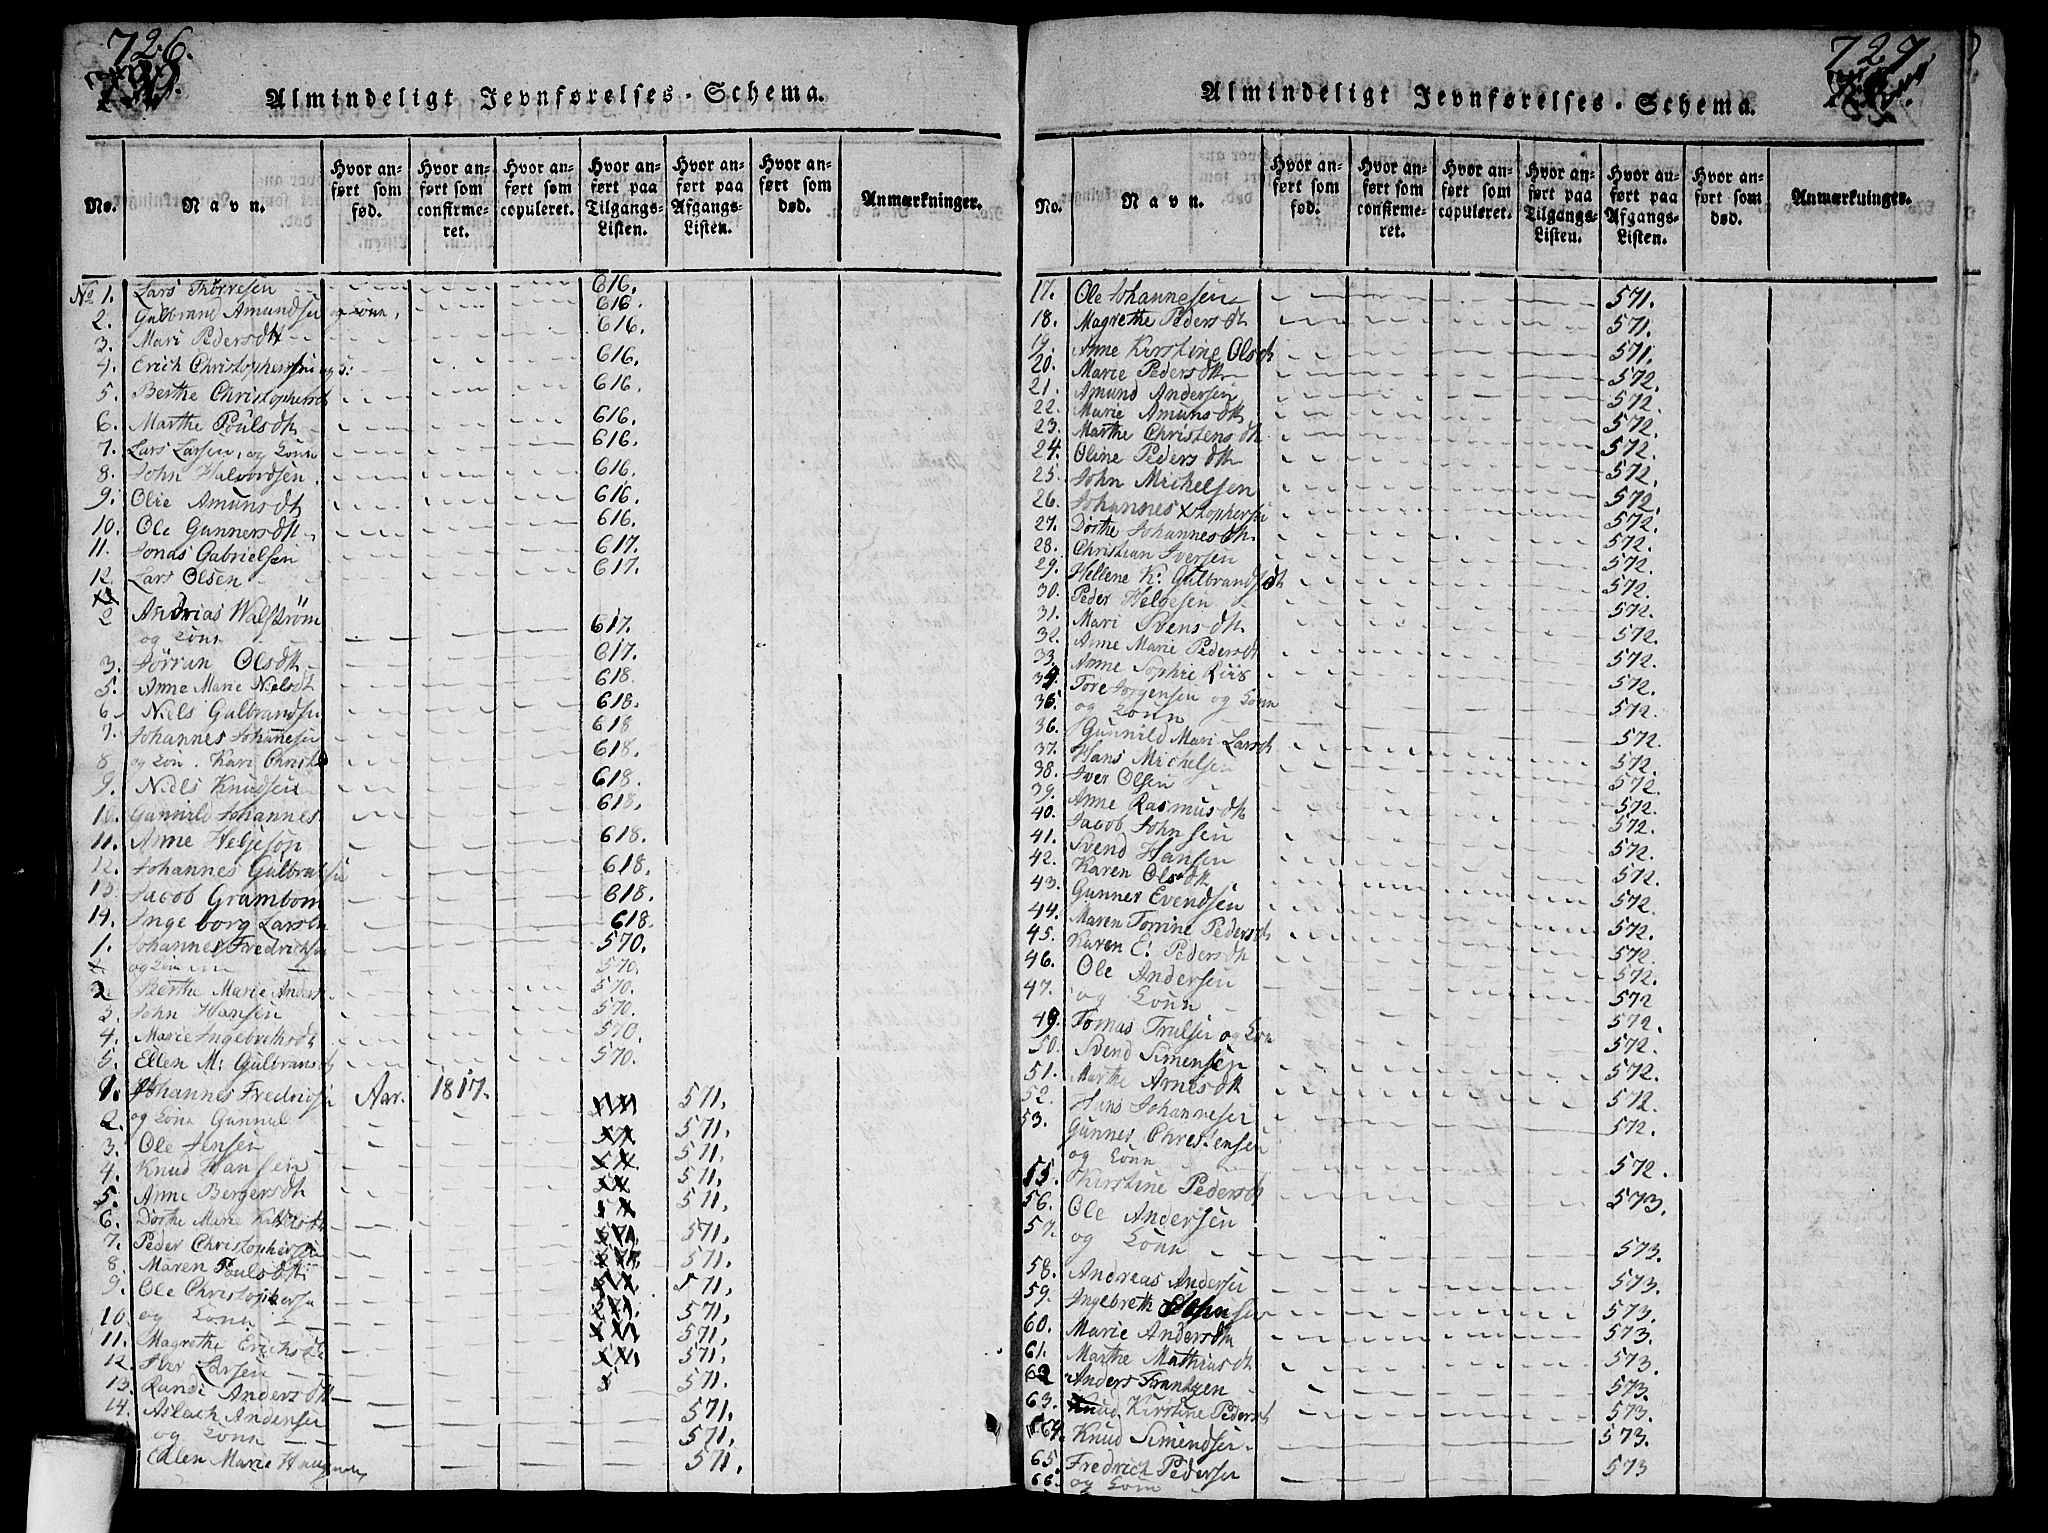 726.
Almindeligt Jevnførelses-Schema.
No. | Navn. | Hvor anført som fød. | Hvor anført som confirmeret. | Hvor anført som copuleret. | Hvor anført paa Tilgangs-Listen. | Hvor anført paa Afgangs-Listen. | Hvor anført som død. | Anmærkninger.
No 1. Lars Thorresen 616.
2. Gulbrand Amundsen og Konn, 616.
3. Mari Pedersdtr 616.
4. Erich Christophersen 616.
5. Berthe Christophersdtr 616.
6. Marthe Poulsdtr 616.
7. Lars Larsen, og Konn 616.
8. John Halvordsen 616.
9. Olie Amunsdtr 616.
10. Ole Gunnersdtr 616.
11. Jonas Gabrielsen 617.
12. Lars Olsen 617.
2 Andrias Walstrøm
og Konn 617.
3. Jörran Olsdtr 617.
5. Anne Marie Nielsdtr 618.
6 Niels Gulbrandsen 618.
7. Johannes Johannesen 618
8 og Kon. Kari Christ 618.
9. Niels Knudsen 618.
10. Gunnild Johannes 618.
11. Anne Helgeson 618.
12. Johannes Gulbrandsen 618.
13 Jacob Grambom 618.
14. Ingeborg Larsen 618.
1. Johannes Fredrichsen 570.
og Konn 570.
2 Berthe Marie Anders 570.
3. John Hansen 570.
4. Marie Ingebrethsdtr 570.
5. Ellen M: Gulbransdtr 570.
1. Johannes Fredrichsen Aar. 1817. 571.
2. og Konn Gunnul 571.
3. Ole Jensen 571.
4. Knud Hansen 571.
5. Anne Bergersdtr 571.
6. Dorthe Marie 571.
7. Peder Christophersen 571.
8. Maren Poulsdtr 571.
9. Ole Christophersen 571,
10 og Konn 571,
11. Magrethe Erichsdtr 571,
12. Iver Larsen 571.
13. Randi Andersdtr 571.
14. Aslach Andersen 571.
og Konn 571.
Ellen Marie 571.
727.
Almindeligt Jevnførelses-Schema.
No. | Navn. | Hvor anført som fød. | Hvor anført som confirmeret. | Hvor anført som copuleret. | Hvor anført paa Tilgangs-Listen. | Hvor anført paa Afgangs-Listen. | Hvor anført som død. | Anmærkninger.
17. Ole Johannesen 571.
18. Magrethe Pedersdtr 571.
19. Anne Kirstine Olsdtr 571.
20. Marie Pedersdtr 572.
21. Amund Andersen 572.
22. Marie Amunsdtr 572.
23. Marthe Christensdtr 572.
24. Oline Pedersdtr 572.
25. John Michelsen 572.
26. Johannes Xstophersen 572.
27. Dorthe Johannesdtr 572.
28. Christian Iversen 572.
29. Hellene K: Gulbrandsdtr 572.
30. Peder Helgesen 572.
31. Mari Svensdtr 572.
32. Anne Marie Pedersdtr 572.
33. Anne Sophie Riis 572.
34 Tore Jorgensen og Konn
35 og Konn 572.
36. Gunnild Mari Larsdtr 572.
37. Hans Michelsen 572.
38. Iver Olsen 572.
39. Anne Rasmusdtr 572.
40. Jacob Johnsen 572.
41. Svend Hansen 572.
42. Karen Olsdtr 572.
43. Gunner Evendsen 572.
44. Maren Torrine Pedersdtr 572.
45. Karen E: Pedersdtr 572.
46. Ole Andersen 572.
47. og Konn 572
49. Tomas Trulsen og Kon 572.
50. Svend Simensen 572.
51. Marthe Arnesdtr 572.
52. Hans Johannesen 572.
53. Gunner Christensen 572.
og Konn 572.
55. Kirstine Pedersdtr 573.
56. Ole Andersen
57. og Konn 573.
58. Andreas Andersen 573.
59. Ingebreth Johnsen 573.
60. Marie Andersdtr 573.
61. Marthe Mathiasdtr 573.
62 Anders Frantzen 573.
63. Kirstine Pedersdtr 573.
64. Knud Simendsen 573.
65. Fredrich Pedersen 573
66. og Konn